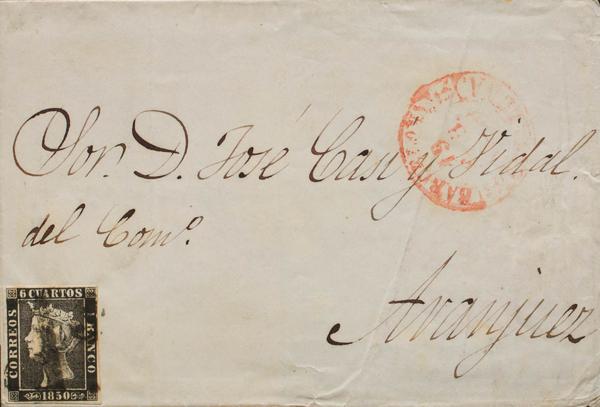 Sor. D. José Casi y Vidal.
del Como.
Aranjuez
6 CUARTOS
CORREOS
FRANCO
1850